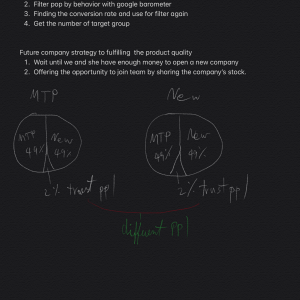 2. Filter pop by behavior with google barometer
3. Finding the conversion rate and use for filter again
4. Get the number of target group
Future company strategy to fulfilling the product quality
1. Wait until we and she have enough money to open a new company
2. Offering the opportunity to join team by sharing the company's stock.
MTP New
MTP New MTP New
49% 49% 49% 49%
2% trust ppl 2% trust ppl
different ppl